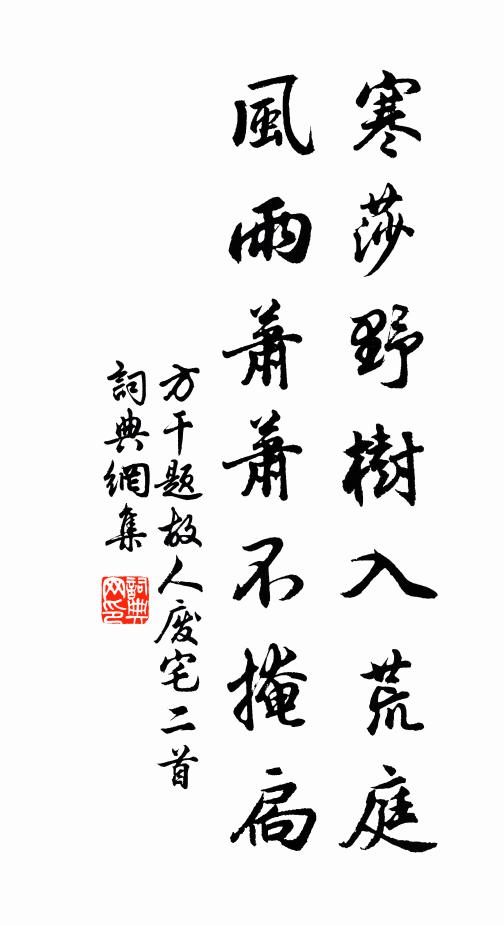 寒莎野樹入荒庭
風雨蕭蕭不掩扃
方干题故人废宅二首
詞典網集
詞典網印